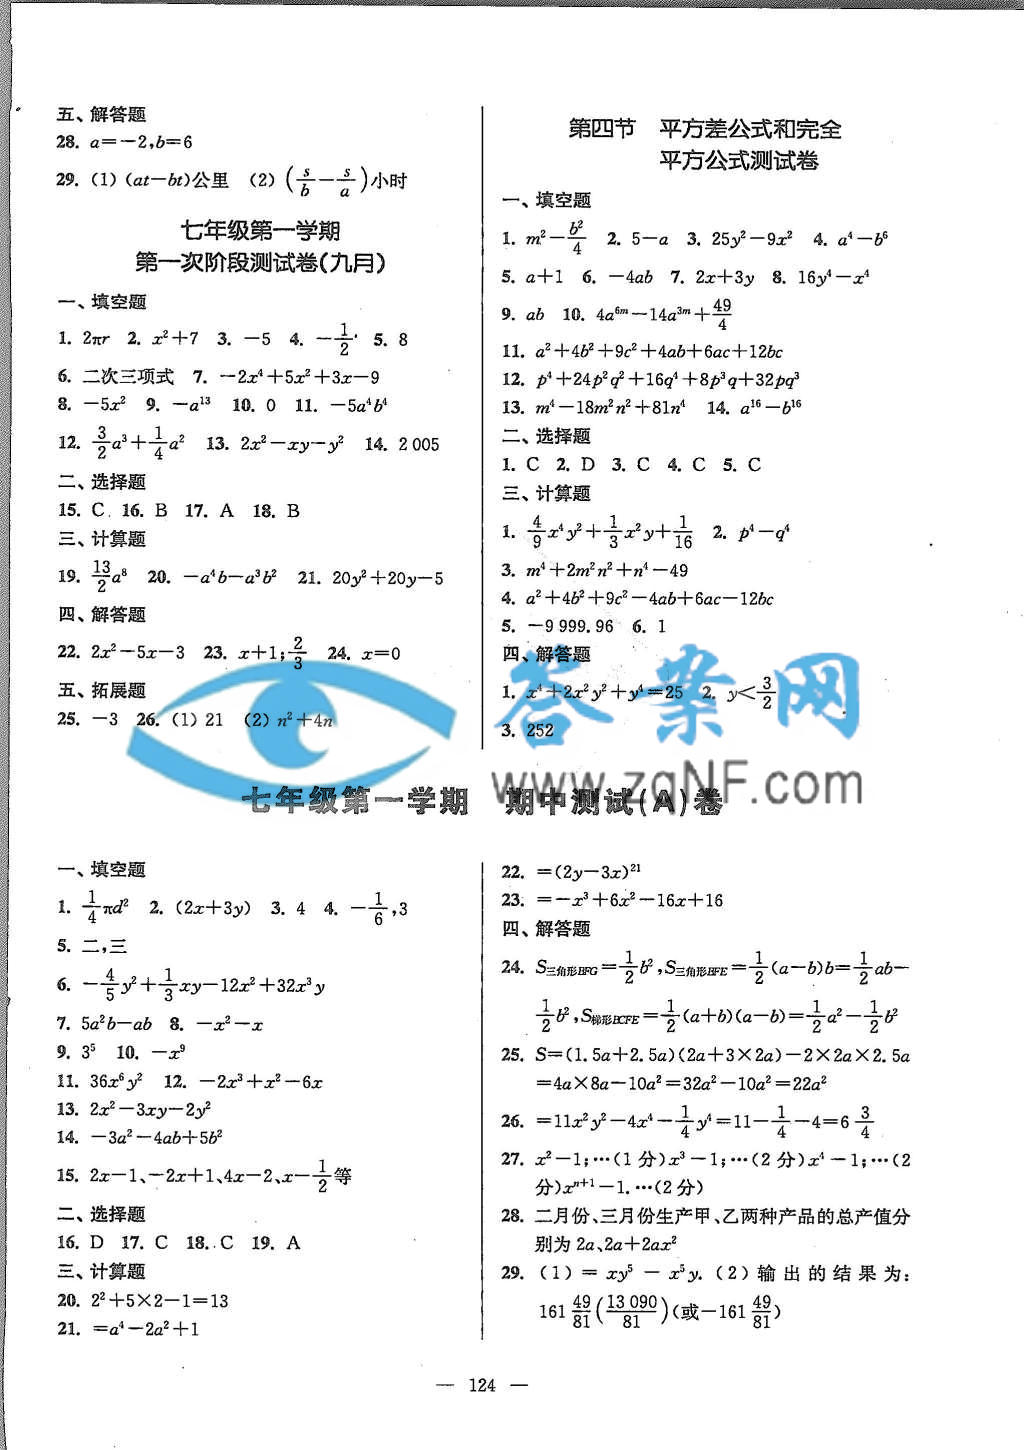 五、解答题
28. a=-2,b=6
29. (1) (at-bt)公里 (2) (s/b-s/a)小时
七年级第一学期
第一次阶段测试卷(九月)
一、填空题
1. 2πr 2. x²+7 3. -5 4. -1/2 5. 8
6. 二次三项式 7. -2x⁴+5x²+3x-9
8. -5x² 9. -a¹³ 10. 0 11. -5a⁴b⁴
12. 3/2a³+1/4a² 13. 2x²-xy-y² 14. 2 005
二、选择题
15. C 16. B 17. A 18. B
三、计算题
19. 13/2a⁸ 20. -a⁴b-a³b² 21. 20y²+20y-5
四、解答题
22. 2x²-5x-3 23. x+1;2/3 24. x=0
五、拓展题
25. -3 26. (1) 21 (2) n²+4n
第四节 平方差公式和完全
平方公式测试卷
一、填空题
1. m²-b²/4 2. 5-a 3. 25y²-9x² 4. a⁴-b⁶
5. a+1 6. -4ab 7. 2x+3y 8. 16y⁴-x⁴
9. ab 10. 4a⁶ᵐ-14a³ᵐ+49/4
11. a²+4b²+9c²+4ab+6ac+12bc
12. p⁴+24p²q²+16q⁴+8p³q+32pq³
13. m⁴-18m²n²+81n⁴ 14. a¹⁶-b¹⁶
二、选择题
1. C 2. D 3. C 4. C 5. C
三、计算题
1. 4/9x⁴y²+1/3x²y+1/16 2. p⁴-q⁴
3. m⁴+2m²n²+n⁴-49
4. a²+4b²+9c²-4ab+6ac-12bc
5. -9 999.96 6. 1
四、解答题
1. x⁴+2x²y²+y⁴=25 2. y<3/2
3. 252
答案网
www.zqNF.com
七年级第一学期 期中测试(A)卷
一、填空题
1. 1/4πd² 2. (2x+3y) 3. 4 4. -1/6,3
5. 二,三
6. -4/5y²+1/3xy-12x²+32x³y
7. 5a²b-ab 8. -x²-x
9. 3⁵ 10. -x⁹
11. 36x⁶y² 12. -2x³+x²-6x
13. 2x²-3xy-2y²
14. -3a²-4ab+5b²
15. 2x-1、-2x+1、4x-2、x-1/2等
二、选择题
16. D 17. C 18. C 19. A
三、计算题
20. 2²+5×2-1=13
21. =a⁴-2a²+1
22. =(2y-3x)²¹
23. =-x³+6x²-16x+16
四、解答题
24. S三角形BFG=1/2b²,S三角形BFE=1/2(a-b)b=1/2ab-
1/2b²,S梯形BCFE=1/2(a+b)(a-b)=1/2a²-1/2b²
25. S=(1.5a+2.5a)(2a+3×2a)-2×2a×2.5a
=4a×8a-10a²=32a²-10a²=22a²
26. =11x²y²-4x⁴-1/4y⁴=11-1/4-4=6 3/4
27. x²-1;…(1分)x³-1;…(2分)x⁴-1;…(2
分)xⁿ⁺¹-1.…(2分)
28. 二月份、三月份生产甲、乙两种产品的总产值分
别为2a、2a+2ax²
29. (1)= xy⁵ - x⁵y. (2)输出的结果为:
161 49/81(13 090/81)(或-161 49/81)
— 124 —